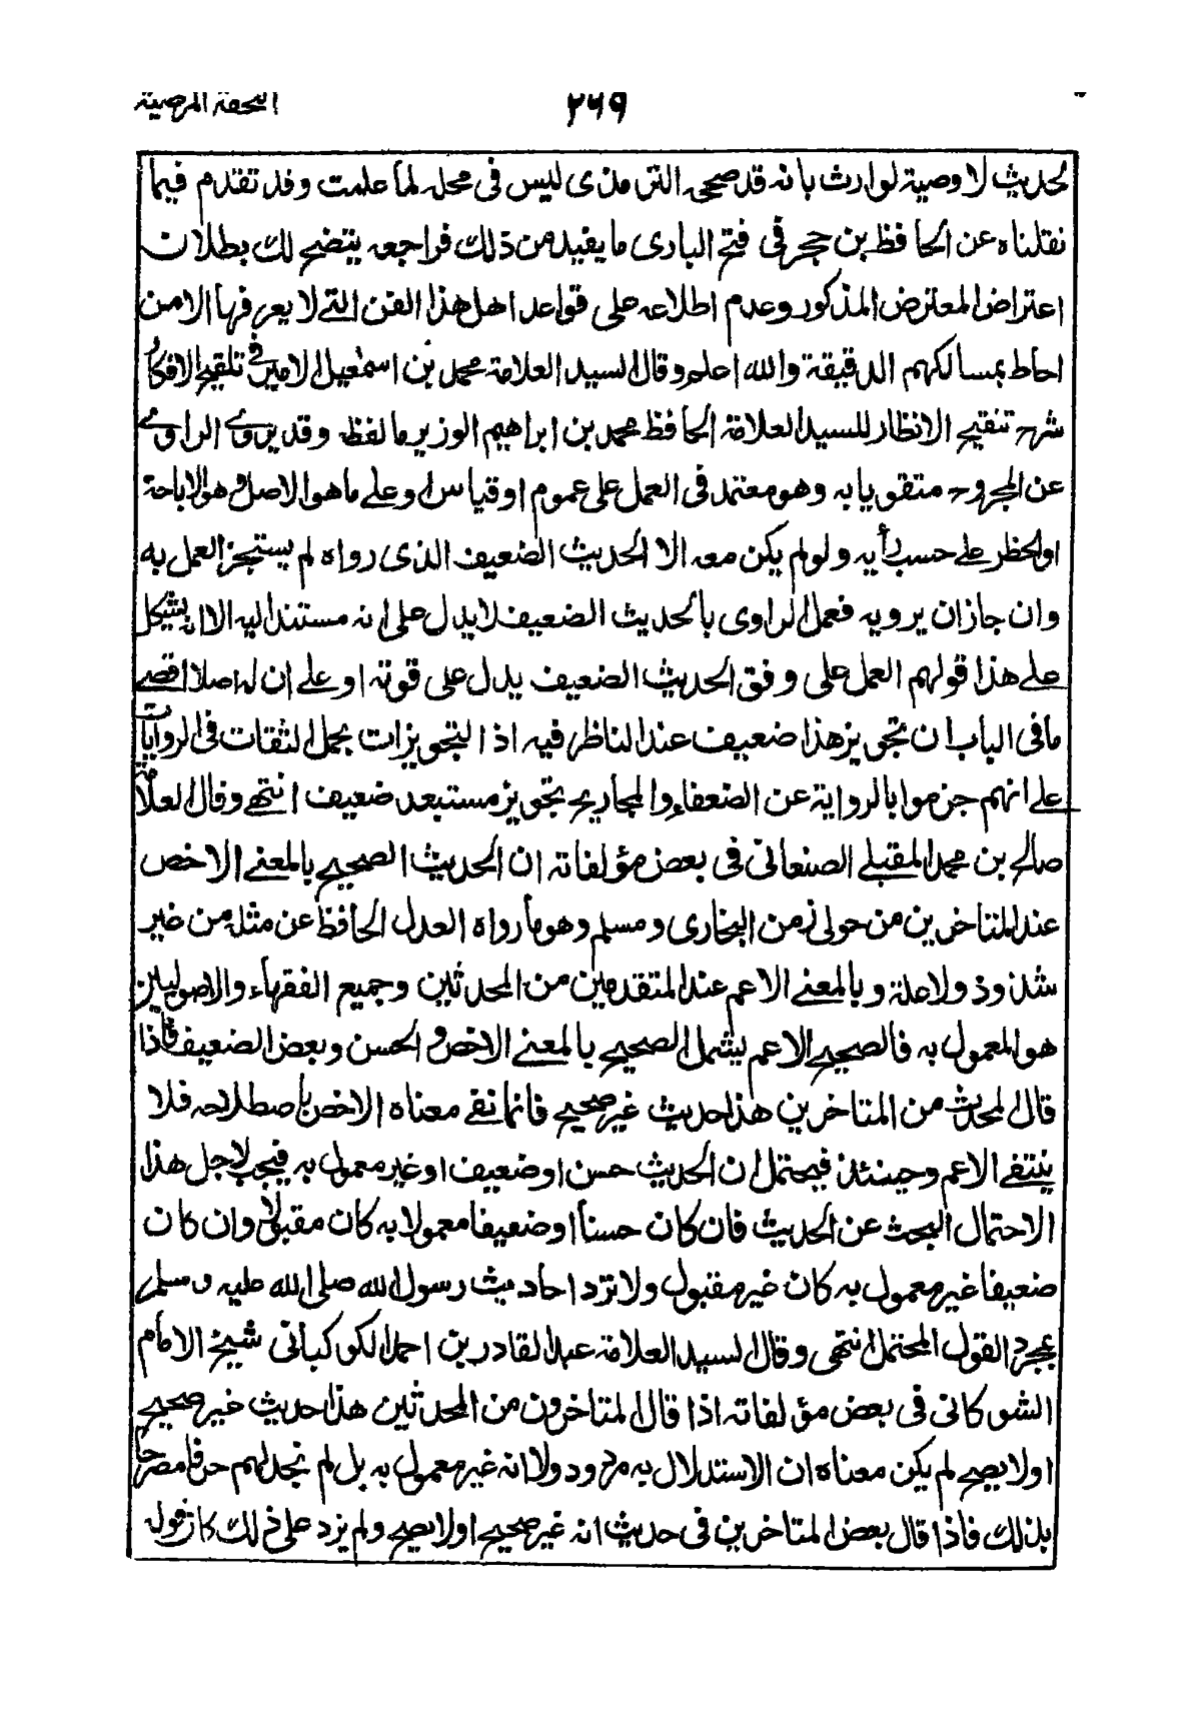 التحفة المرضية
٢٦٩
لحديث لا وصية لوارث بانه قد صححه الترمذى ليس فى محله لما علمت وقد تقدم فيما
نقلناه عن الحافظ بن حجر فى فتح البارى ما يفيد من ذلك فراجعه يتضح لك بطلان
اعتراض المعترض المذكور وعدم اطلاعه على قواعد اهل هذا الفن التى لا يعرفها الا من
احاط بمسالكهم الدقيقة والله اعلم وقال السيد العلامة محمد بن اسمعيل الامير فى تلقيح الافكار
شرح تنقيح الانظار للسيد العلامة الحافظ محمد بن ابراهيم الوزير ما لفظه وقد يروى الراوى
عن المجروح متقويا به وهو معتمد فى العمل على عموم او قياس او على ما هو الاصل وهو الاباحة
او الحظر على حسب رأيه ولو لم يكن معه الا الحديث الضعيف الذى رواه لم يستجز العمل به
وان جاز ان يرويه فعمل الراوى بالحديث الضعيف لا يدل على انه مستند اليه الا انه يشكل
على هذا قولهم العمل على وفق الحديث الضعيف يدل على قوته او على ان له اصلا اقصى
ما فى الباب ان تجويز هذا ضعيف عند الناظر فيه اذ التجويزات بحمل الثقات فى الروايات
على انهم جزموا بالرواية عن الضعفاء والمجاريح تجويز مستبعد ضعيف انتهى وقال العلامة
صالح بن محمد المقبلى الصنعانى فى بعض مؤلفاته ان الحديث الصحيح بالمعنى الاخص
عند المتاخرين من حوالى زمن البخارى ومسلم وهو ما رواه العدل الحافظ عن مثله من غير
شذوذ ولا علة وبالمعنى الاعم عند المتقدمين من المحدثين وجميع الفقهاء والاصوليين
هو المعمول به فالصحيح الاعم يشمل الصحيح بالمعنى الاخص والحسن وبعض الضعيف فاذا
قال المحدث من المتاخرين هذا حديث غير صحيح فانما نفى معناه الاخص باصطلاحه فلا
ينتفى الاعم وحينئذ فيحتمل ان الحديث حسن او ضعيف او غير معمول به فيجب لاجل هذا
الاحتمال البحث عن الحديث فان كان حسناً او ضعيفا معمولا به كان مقبولا وان كان
ضعيفا غير معمول به كان غير مقبول ولا ترد احاديث رسول الله صلى الله عليه وسلم
بمجرد القول المحتمل انتهى وقال السيد العلامة عبد القادر بن احمد الكوكبانى شيخ الامام
الشوكانى فى بعض مؤلفاته اذا قال المتاخرون من المحدثين هذا حديث غير صحيح
او لا يصح لم يكن معناه ان الاستدلال به مردود ولا انه غير معمول به بل لم نجد لهم حرفا مصرحا
بذلك فاذا قال بعض المتاخرين فى حديث انه غير صحيح او لا يصح ولم يزد على ذلك كان قوله